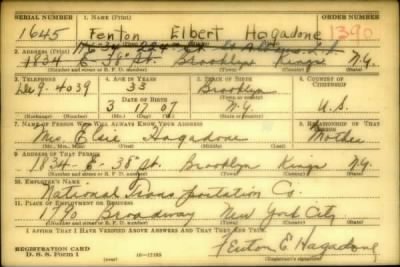 SERIAL NUMBER 1. NAME (Print) ORDER NUMBER
1645 Fenton Elbert Hagadone 1390
(First) (Middle) (Last)
2. ADDRESS (Print)
1834 E-38 St. Brooklyn Kings N.Y.
(Number and street or R. F. D. number) (Town) (County) (State)
3. TELEPHONE 4. AGE IN YEARS 5. PLACE OF BIRTH 6. COUNTRY OF CITIZENSHIP
9-4039 33 Brooklyn
DATE OF BIRTH (Town or county)
3 17 07 N.Y. U.S.
(Exchange) (Number) (Mo.) (Day) (Yr.) (State or country)
7. NAME OF PERSON WHO WILL ALWAYS KNOW YOUR ADDRESS 8. RELATIONSHIP OF THAT PERSON
Mrs Elsie Hagadone Mother
(Mr., Mrs., Miss) (First) (Middle) (Last)
9. ADDRESS OF THAT PERSON
1834 - E - 38th St. Brooklyn Kings N.Y.
(Number and street or R. F. D. number) (Town) (County) (State)
10. EMPLOYER'S NAME
National Transportation Co.
11. PLACE OF EMPLOYMENT OR BUSINESS
1790 Broadway New York City
(Number and street or R. F. D. number) (Town) (County) (State)
I AFFIRM THAT I HAVE VERIFIED ABOVE ANSWERS AND THAT THEY ARE TRUE.
REGISTRATION CARD
D. S. S. FORM 1 (over) 16-17105 Fenton E. Hagadone